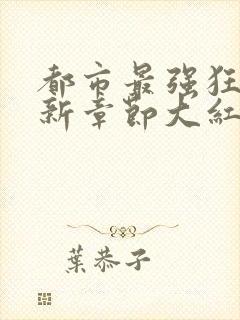 都市最强狂
新章节大红
葉恭子